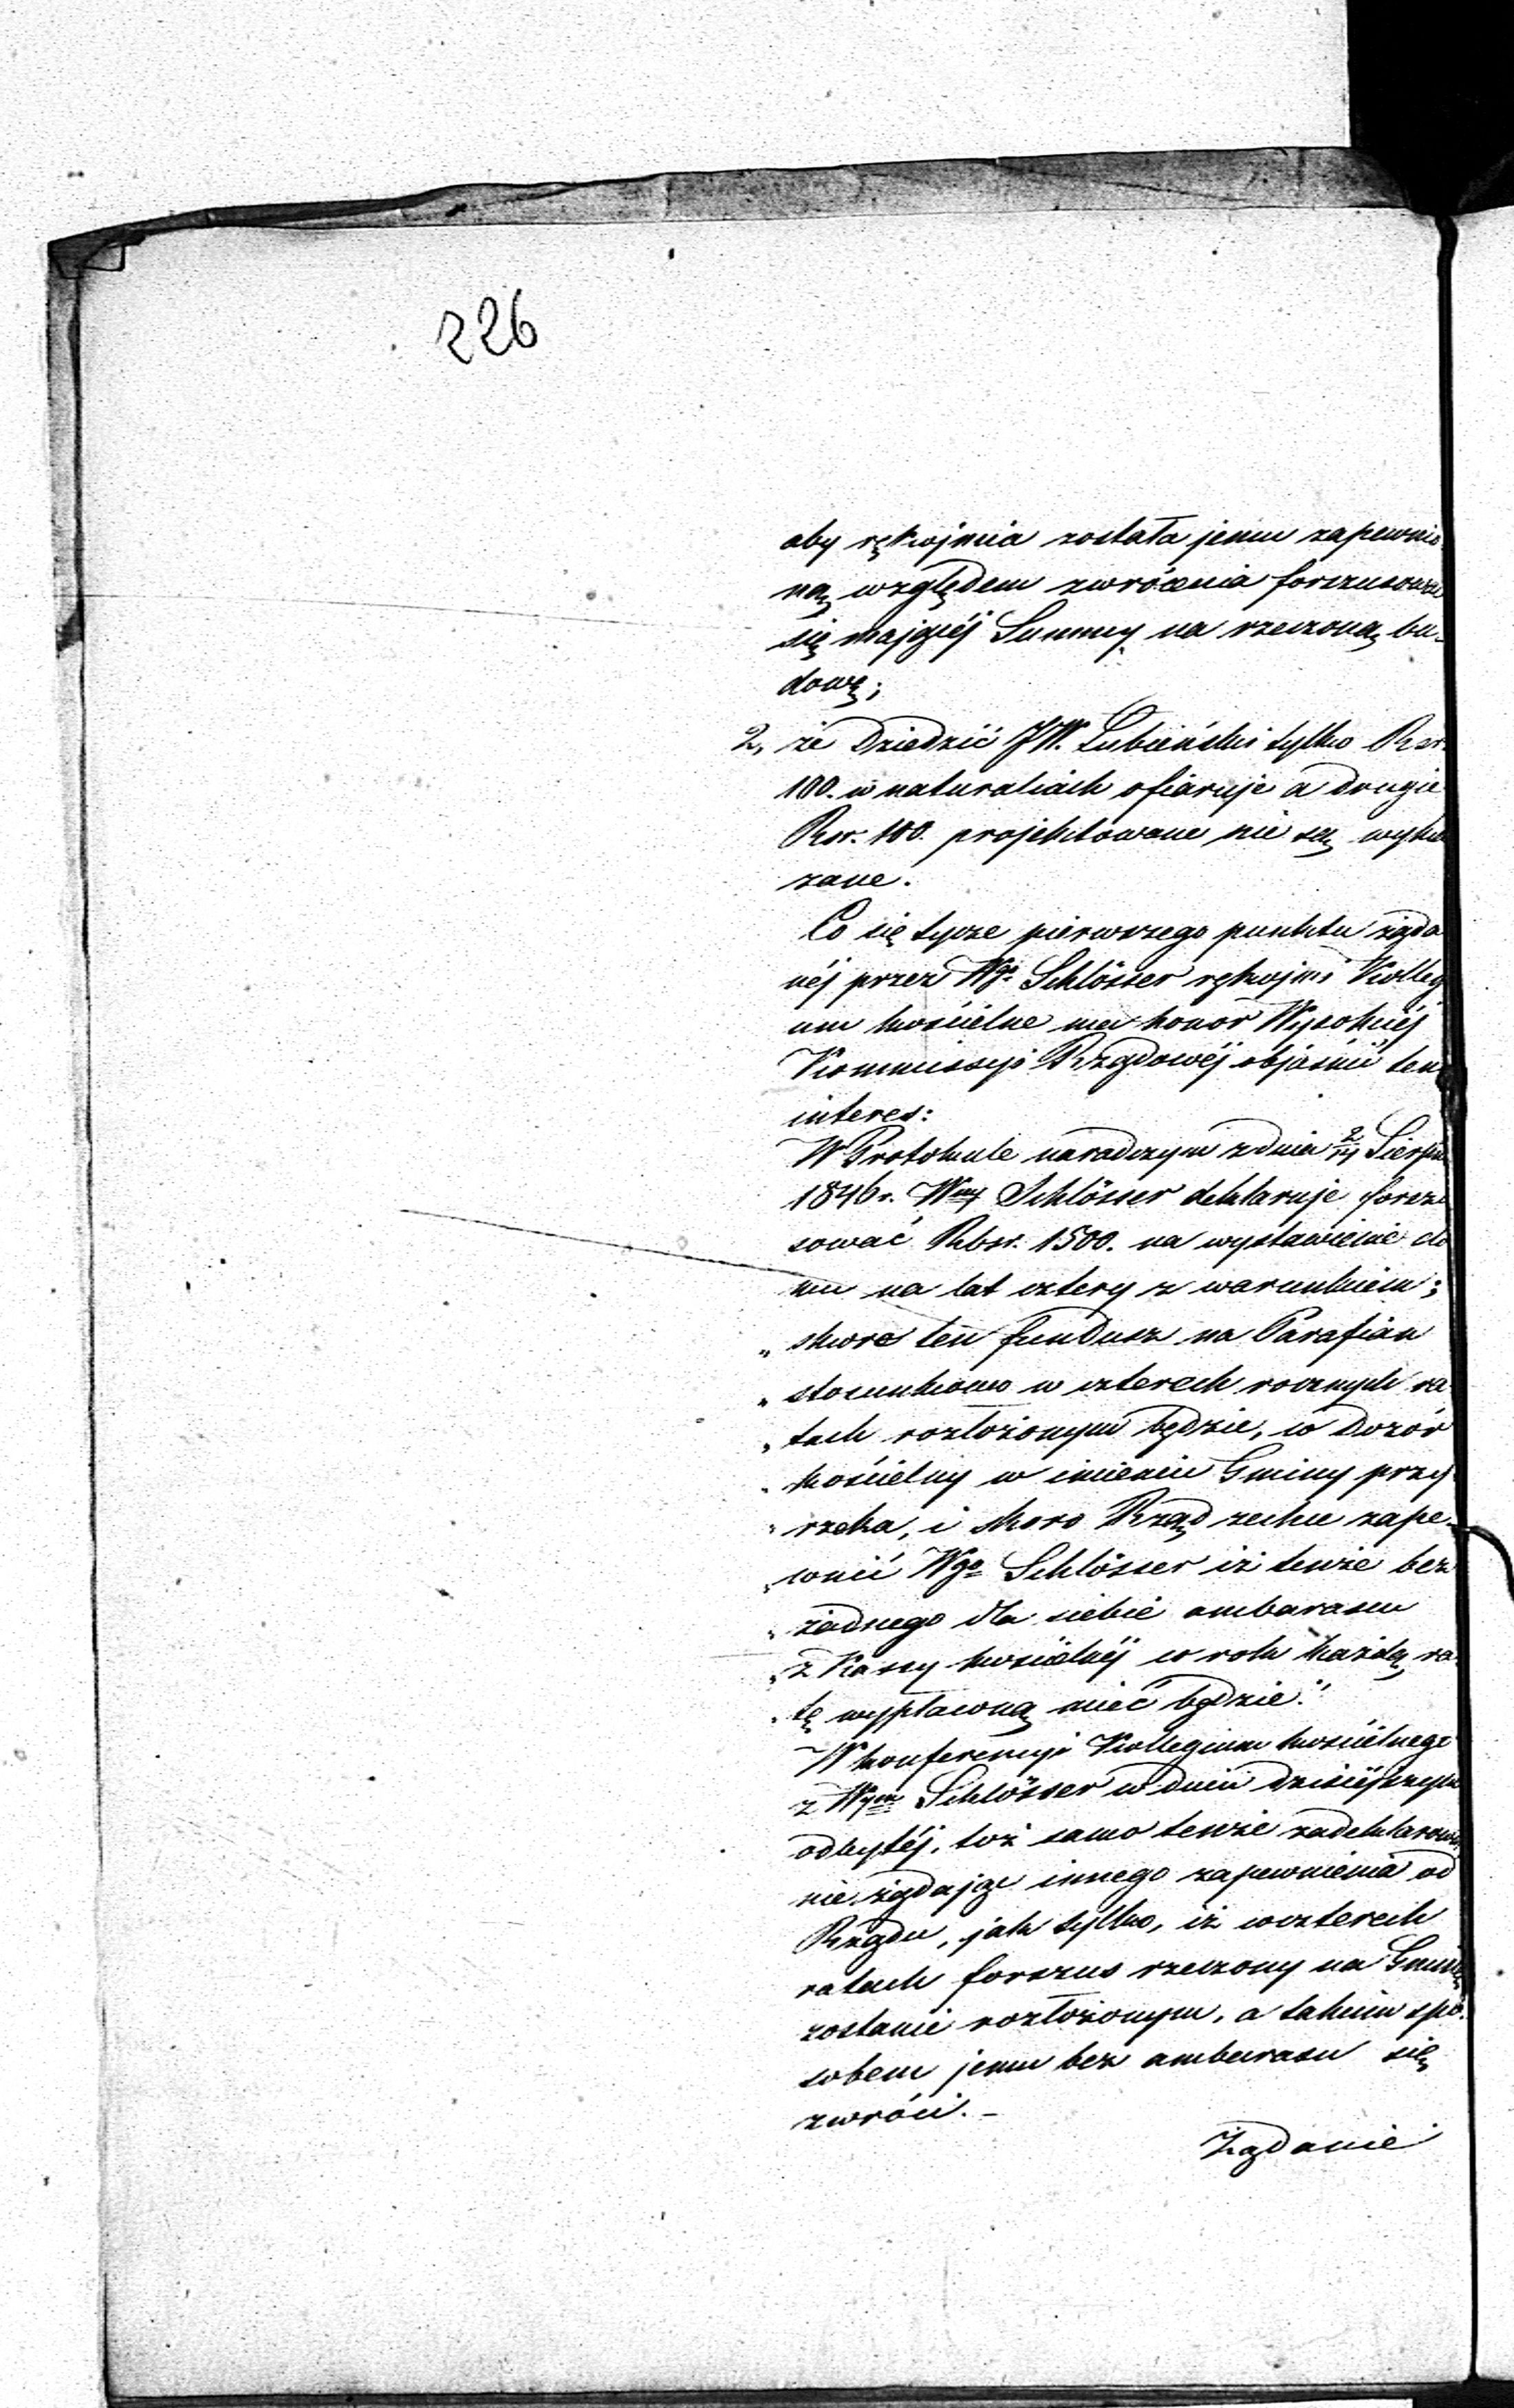 226
aby rękojmia została jemu zapewnio-
ną względem zwrócenia forszusować
się mającéj Summy na rzeczoną bu-
dowę;
2, że Dziedzić JW. Łubieński tylko Rsr.
100. w naturaliach ofiaruje a drugie
Rsr. 100. projektowane nie są wyka
zane.
Co się tycze pierwszego punktu żąda
néj przez Wgo. Schlösser rękojmi Kolleg
um kościelne ma honor Wysokiéj
Kommissyi Rządowéj objaśnić ten
interes:
W Protokule naradczym z dnia Sierpn
1846 r. Wny Schlösser deklaruje forszu
sować Rbsr. 1500. na wystawienie do
mu na lat cztery z warunkiem;
„ skoro ten fundusz na Parafian
„ stosunkowo w czterech rocznych ra
„ tach rozłożonym będzie, co Dozór
„ kościelny w imieniu Gminy przy
„ rzeka, i skoro Rząd zechce zape-
„ wnić Wgo Schlösser iż tenże bez
„ żadnego dla siebie ambarasu
„ z Kassy kościelnéj co rok każdą ra
„ tę wypłaconą mieć będzie."
W konferencyi Kollegium kościelnego
z Wym Schlösser w dniu dzisiéjszym
odbytéj, toż samo tenże zadeklarował,
nie żądając innego zapewnienia od
Rządu, jak tylko, iż w czterech
ratach forszus rzeczony na Gminę
zostanie rozłożonym, a takim spo-
sobem jemu bez ambarasu się
zwróci. -
Żądanie